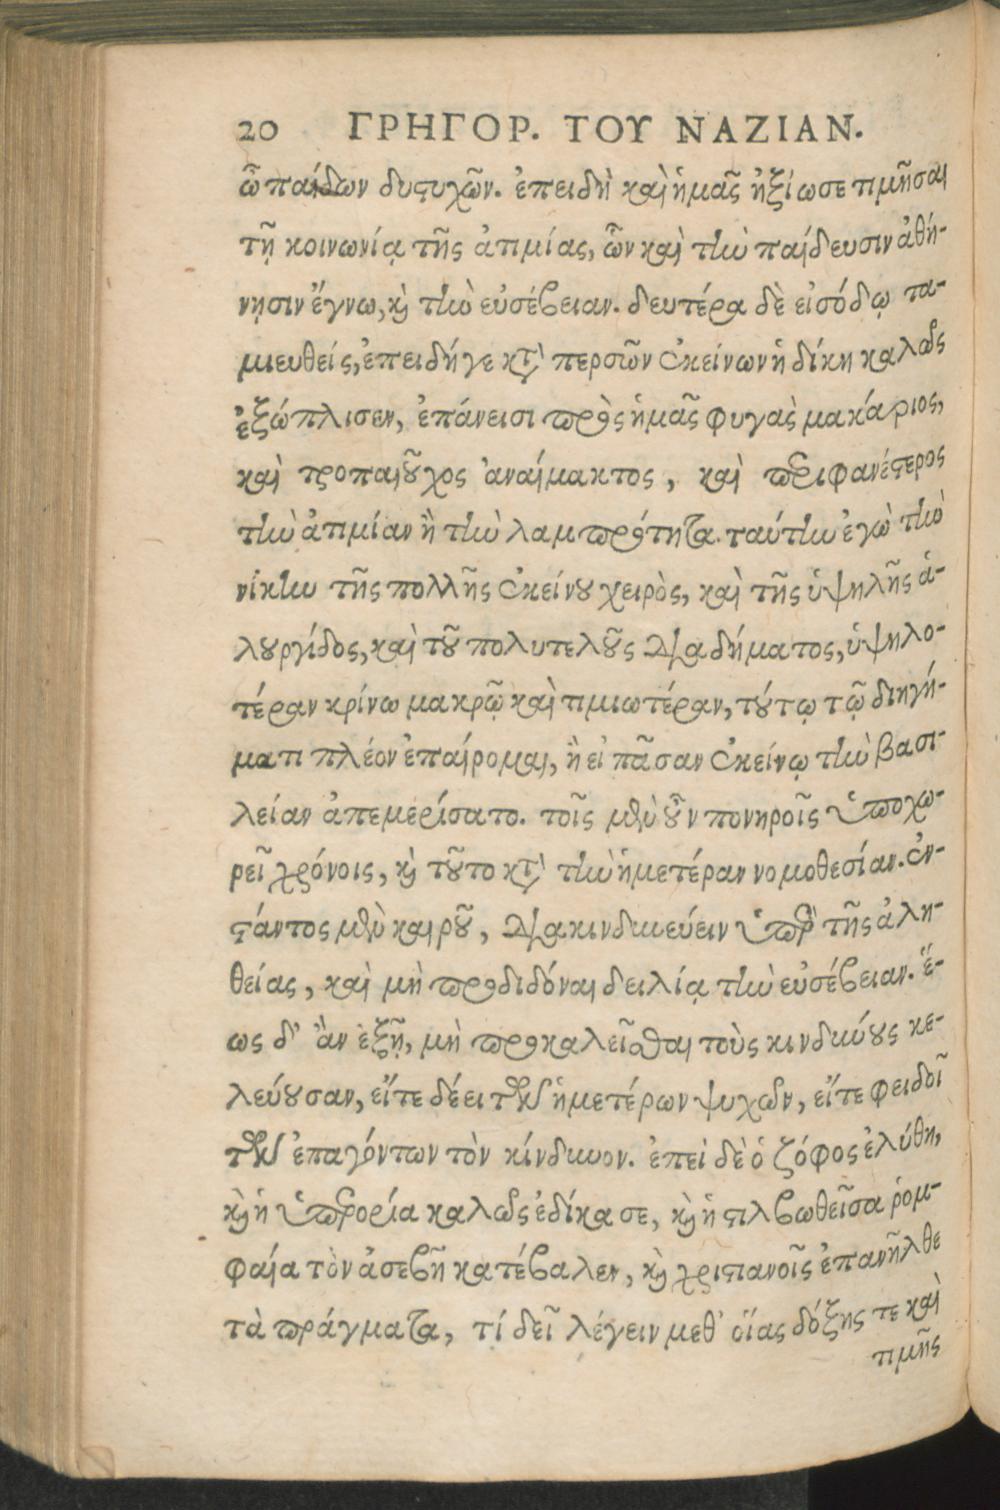 20 ΓΡΗΓΟΡ. ΤΟΥ ΝΑΖΙΑΝ.
ὢ παίδων δυςυχῶν. ἐπειδὴ καὶ ἡμᾶς ἠξίωσε τιμῆσαι
τῇ κοινωνίᾳ τῆς ἀτιμίας, ὧν καὶ τὴν παίδευσιν ἀθή-
νησιν ἔγνω, καὶ τὴν εὐσέβειαν. δευτέρα δὲ εἰσόδῳ τα-
μιευθείς, ἐπειδήγε κτ̀ περσῶν ἐκείνων ἡ δίκη καλῶς
ἐξώπλισεν, ἐπάνεισι πρὸς ἡμᾶς φυγὰς μακάριος,
καὶ τροπαιοῦχος ἀναίμακτος, καὶ περιφανέςερος
τὴν ἀτιμίαν ἢ τὴν λαμπρότητα. ταύτην ἐγὼ τὴν
νίκην τῆς πολλῆς ἐκείνου χειρὸς, καὶ τῆς ὑψηλῆς ἁ-
λουργίδος, καὶ τοῦ πολυτελοῦς διαδήματος, ὑψηλο-
τέραν κρίνω μακρῷ καὶ τιμιωτέραν, τούτῳ τῷ διηγή-
ματι πλέον ἐπαίρομαι, ἢ εἰ πᾶσαν ἐκείνῳ τὴν βασι-
λείαν ἀπεμερίσατο. τοῖς μὲν οὖν πονηροῖς ὑποχω-
ρεῖ χρόνοις, καὶ τοῦτο κτ̀ τὴν ἡμετέραν νομοθεσίαν. ἐν-
ςάντος μὲν καιροῦ, διακινδυνεύειν ὑπὲρ τῆς ἀλη-
θείας, καὶ μὴ προδιδόναι δειλίᾳ τὴν εὐσέβειαν. ἕ-
ως δ' ἂν ἐξῇ, μὴ προκαλεῖσθαι τοὺς κινδύνους κε-
λεύουσαν, εἴτε δέει τῶν ἡμετέρων ψυχῶν, εἴτε φειδοῖ
τῶν ἐπαγόντων τὸν κίνδυνον. ἐπεὶ δὲ ὁ ζόφος ἐλύθη,
καὶ ἡ ὑπερορία καλῶς ἐδίκασε, καὶ ἡ ςιλβωθεῖσα ῥομ-
φαία τὸν ἀσεβῆ κατέβαλεν, καὶ χριςιανοῖς ἐπανῆλθε
τὰ πράγματα, τί δεῖ λέγειν μεθ' οἵας δόξης τε καὶ
τιμῆς